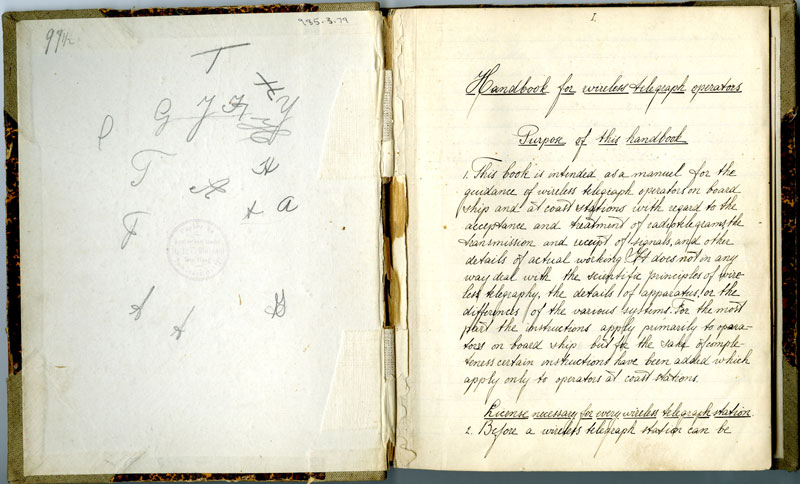 985.8.79
994
T
H Y
G Y H
P
T
A H
x a
F
A A
1.
Handbook for wireless telegraph operators
Purpose of this handbook
1. This book is intended as a manuel for the
guidance of wireless telegraph operators on board
ship and at coast stations with regard to the
acceptance and treatment of radiotelegrams, the
transmission and receipt of signals, and other
details of actual working. It does not in any
way deal with the scientific principles of wire-
less telegraphy, the details of apparatus, or the
differences of the various systems. For the most
part the instructions apply primarily to opera-
tors on board ship but for the sake of comple-
teness certain instructions have been added which
apply only to operators at coast stations.
License necessary for every wireless telegraph station.
2. Before a wireless telegraph station can be